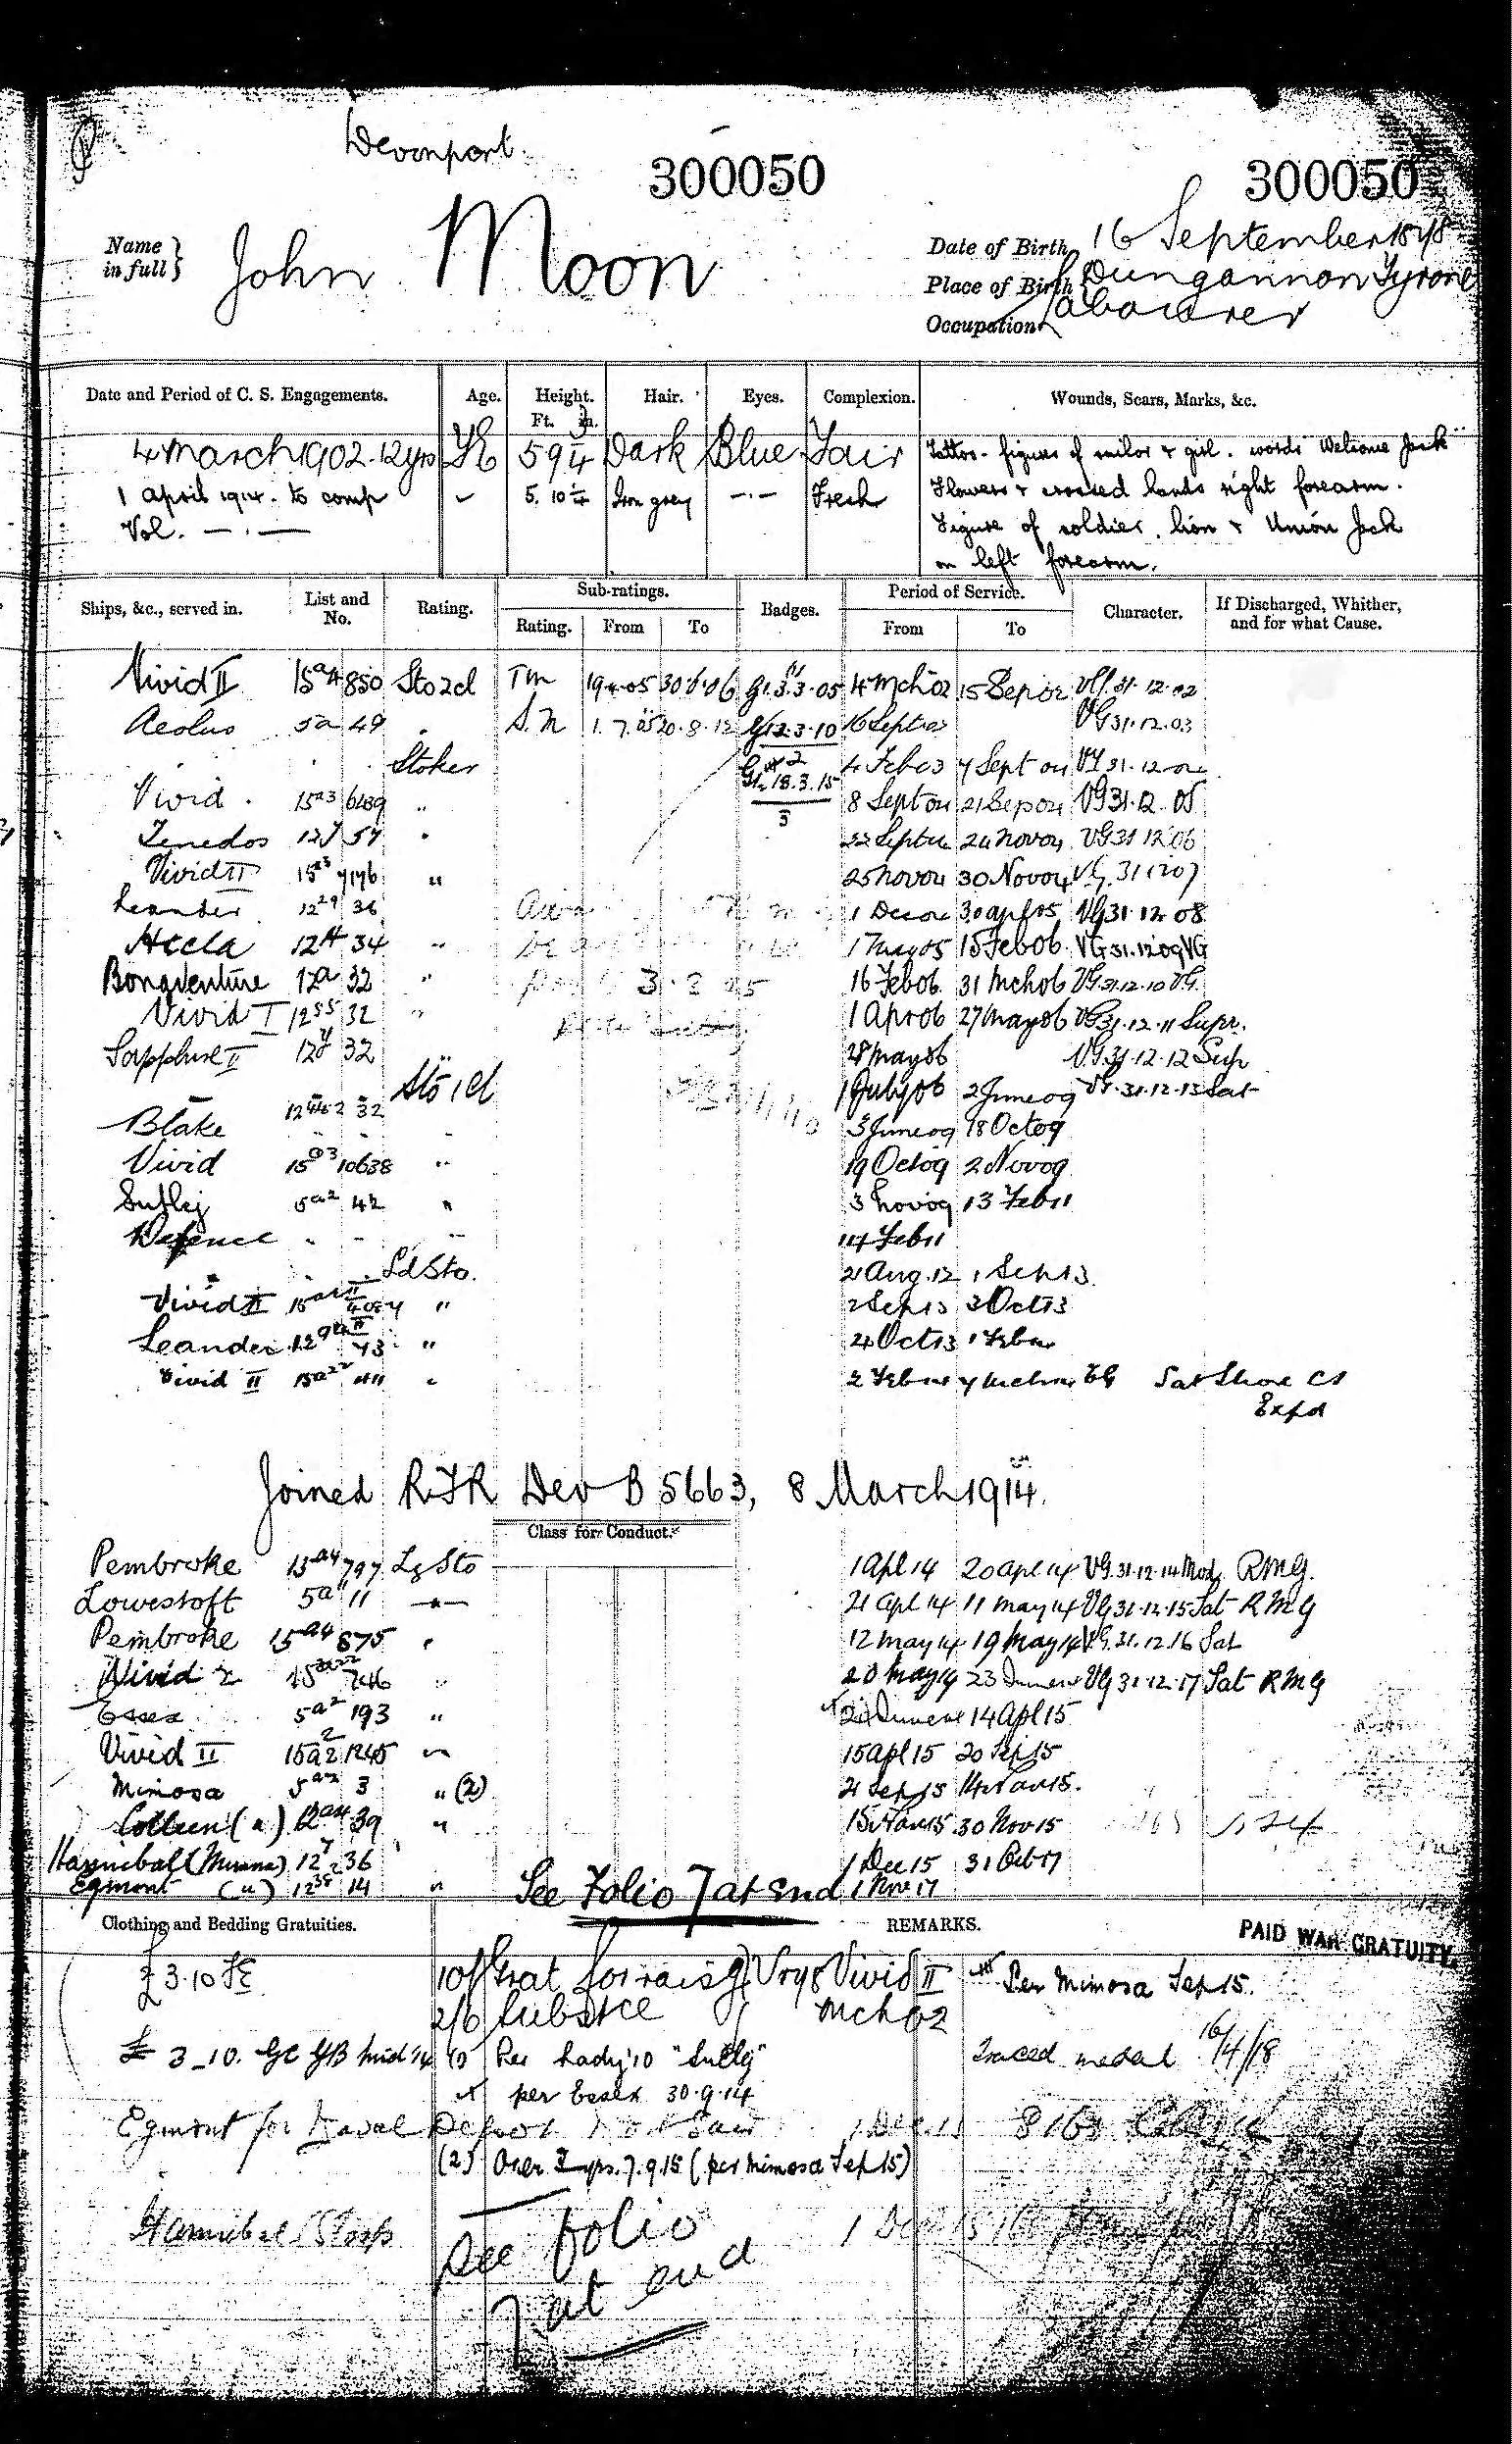 Devonport.
300050 300050
Name in full} John Moon
Date of Birth 16 September 1878
Place of Birth Dungannon Tyrone
Occupation Labourer
Date and Period of C. S. Engagements. Age. Height. Ft. In. Hair. Eyes. Complexion. Wounds, Scars, Marks, &c.
4 March 1902. 12 yrs 5 9 3/4 Dark Blue Fair Tattoo - figures of sailor & girl. words Welcome Jack
1 April 1914. to comp 5. 10 Iron grey -.- Fresh Flowers & crossed hands right forearm.
Vol. -.- Figure of soldier. lion & Union Jack
on left forearm.
Ships, &c., served in. List and No. Rating. Sub-ratings. Badges. Period of Service. Character. If Discharged, Whither, and for what Cause.
Rating. From To From To
Vivid II 15a4 850 Sto 2cl Tm 19.4.05 30.6.06 G1.3.3.05 4 Mch 02 15 Sep 02 VG 31.12.02
Aeolus 5a 49 " S.M 1.7. 20.8.12 3.10 16 Sept 02 VG 31.12.03
Stoker 18.3.15 4 Feb 03 7 Sept 04 VG 31.12.04
Vivid 15a3 " 3 8 Sept 04 21 Sep 04 VG 31.12.05
Tenedos 12 57 " 22 Sept 04 24 Nov 04 VG 31 12 06
Vivid II 15a3 7176 " 25 Nov 04 30 Nov 04 VG. 31 12 07
Leander 36 1 Dec 04 30 Apl 05 VG 31.12.08
Hecla 12A 34 " 1 May 05 15 Feb 06 VG 31.12.09 VG
Bonaventure 12a 32 " 16 Feb 06 31 Mch 06 VG 31.12.10 VG.
Vivid I 32 " 1 Apr 06 27 May 06 VG 31.12.11 Supr.
Sapphire II 32 28 May 06 VG 31.12.12 Sup
Sto 1cl 1 July 06 2 June 09 VG 31.12.13 Sat
Blake - - - 3 June 09 18 Oct 09
Vivid 15a3 10638 " 19 Oct 09 2 Nov 09
Sutlej 5a2 42 " 3 Nov 09 13 Feb 11
Defence " - - 14 Feb 11
Ld Sto. 21 Aug. 12 1 Sep 13
Vivid II " 2 Sep 13 3 Oct 13
Leander 43 " 4 Oct 13 1 Feb 14
Vivid II 15a22 " 2 Feb 14 7 Mch 14 VG Sat Shore CS
Expd
Joined R.F.R Dev B 5663, 8 March 1914.
Class for Conduct.
Pembroke 15a4 797 Lg Sto 1 Apl 14 20 Apl 14 VG 31.12.14 Mod. RMG.
Lowestoft 5a 11 -"- 21 Apl 14 11 May 14 VG 31.12.15 Sat RMG
Pembroke 15a4 875 " 12 May 14 19 May 14 VG. 31.12.16 Sat
Vivid 2 746 " 20 May 14 23 June 14 VG 31.12.17 Sat RMG
Essex 5a2 193 " 24 June 14 14 Apl 15
Vivid II 15a2 1245 " 15 Apl 15 20 Sep 15
Mimosa 5a2 3 " (2) 21 Sep 15 14 Nov 15.
Colleen (") 39 " 15 Nov 15 30 Nov 15
Hannibal (Mimosa) 36 1 Dec 15 31 Oct 17
Egmont (") 14 " See Folio 7 at end 1 Nov 17
Clothing and Bedding Gratuities. REMARKS. PAID WAR GRATUITY.
£3.10 10/ Grat for raisg Vivid II Per Mimosa Sep 15.
2/6 Subsce Mch 02
£3-10. Per Lady '10 "Sutlej" Traced medal 16/4/18
per Essex 30.9.14
Egmont for Naval Depot 1 Dec. 15
(2) Over 3 yrs. 7.9.15 (per Mimosa Sep 15)
Hannibal 1 Dec 15
See folio
7 at end